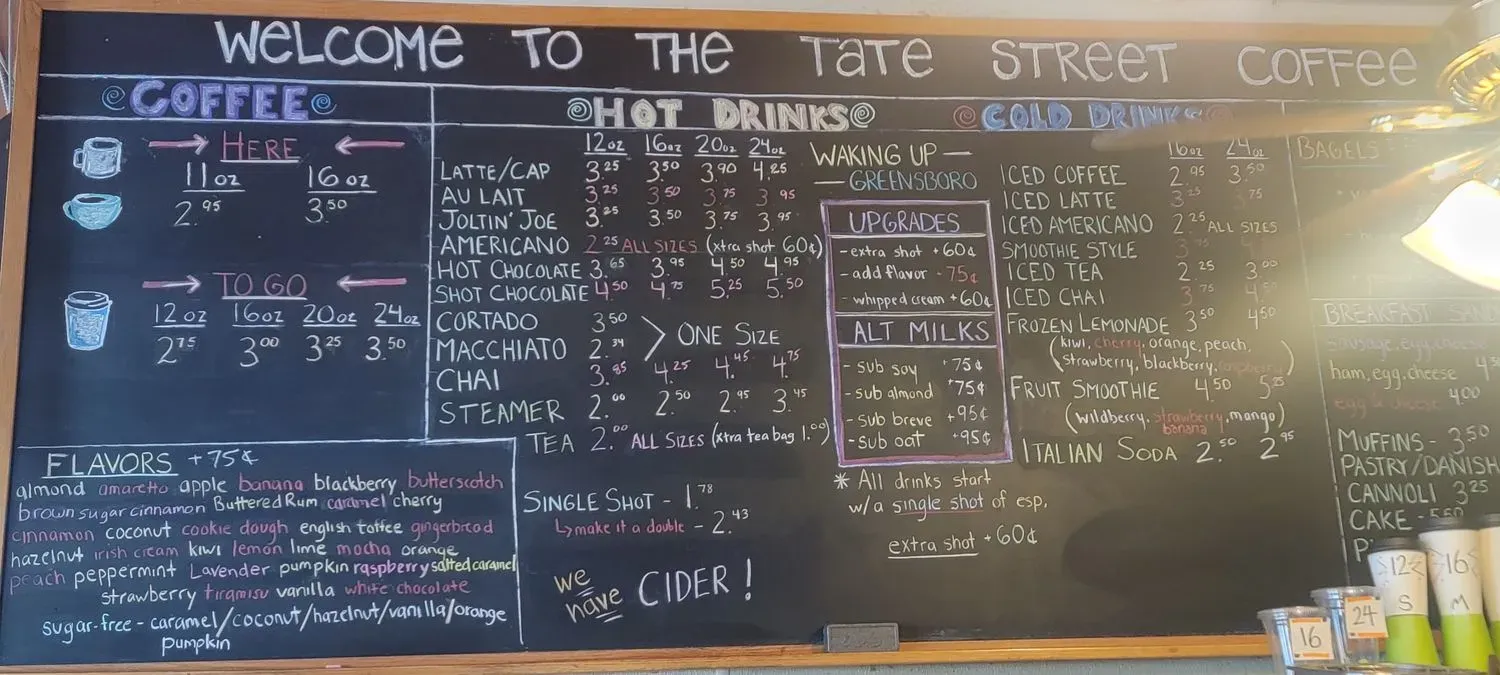 WELCOME TO THE TATE STREET COFFEE
COFFEE
HERE
11oz 16oz
2.95 3.50
TO GO
12oz 16oz 20oz 24oz
2.75 3.00 3.25 3.50
FLAVORS +75¢
almond amaretto apple banana blackberry butterscotch
brown sugar cinnamon Buttered Rum caramel cherry
cinnamon coconut cookie dough english toffee gingerbread
hazelnut irish cream kiwi lemon lime mocha orange
peach peppermint Lavender pumpkin raspberry salted caramel
strawberry tiramisu vanilla white chocolate
sugar-free - caramel/coconut/hazelnut/vanilla/orange
pumpkin
HOT DRINKS
12oz 16oz 20oz 24oz
LATTE/CAP 3.25 3.50 3.90 4.25
AU LAIT 3.25 3.50 3.75 3.95
JOLTIN' JOE 3.25 3.50 3.75 3.95
AMERICANO 2.25 ALL SIZES (xtra shot 60¢)
HOT CHOCOLATE 3.65 3.95 4.50 4.95
SHOT CHOCOLATE 4.50 4.75 5.25 5.50
CORTADO 3.50
MACCHIATO 2.34
> ONE SIZE
CHAI 3.85 4.25 4.45 4.75
STEAMER 2.00 2.50 2.95 3.45
TEA 2.00 ALL SIZES (xtra tea bag 1.00)
SINGLE SHOT - 1.78
↳make it a double - 2.43
we have CIDER!
WAKING UP —
— GREENSBORO
UPGRADES
- extra shot +60¢
- add flavor - 75¢
- whipped cream +60¢
ALT MILKS
- sub soy +75¢
- sub almond +75¢
- sub breve +95¢
- sub oat +95¢
* All drinks start
w/a single shot of esp.
extra shot +60¢
COLD DRINKS
16oz 24oz
ICED COFFEE 2.95 3.50
ICED LATTE 3.25 .75
ICED AMERICANO 2.25 ALL SIZES
SMOOTHIE STYLE
ICED TEA 2.25 3.00
ICED CHAI 3.75
FROZEN LEMONADE 3.50 4.50
(kiwi, cherry, orange, peach,
strawberry, blackberry, raspberry)
FRUIT SMOOTHIE 4.50 5.25
(wildberry, strawberry banana, mango)
ITALIAN SODA 2.50 2.95
BAGELS
BREAKFAST SAND
sausage, egg, cheese
ham, egg, cheese
egg & cheese 4.00
MUFFINS - 3.50
PASTRY/DANISH
CANNOLI 3.25
CAKE - 5.50
16
24
12
S
16
M